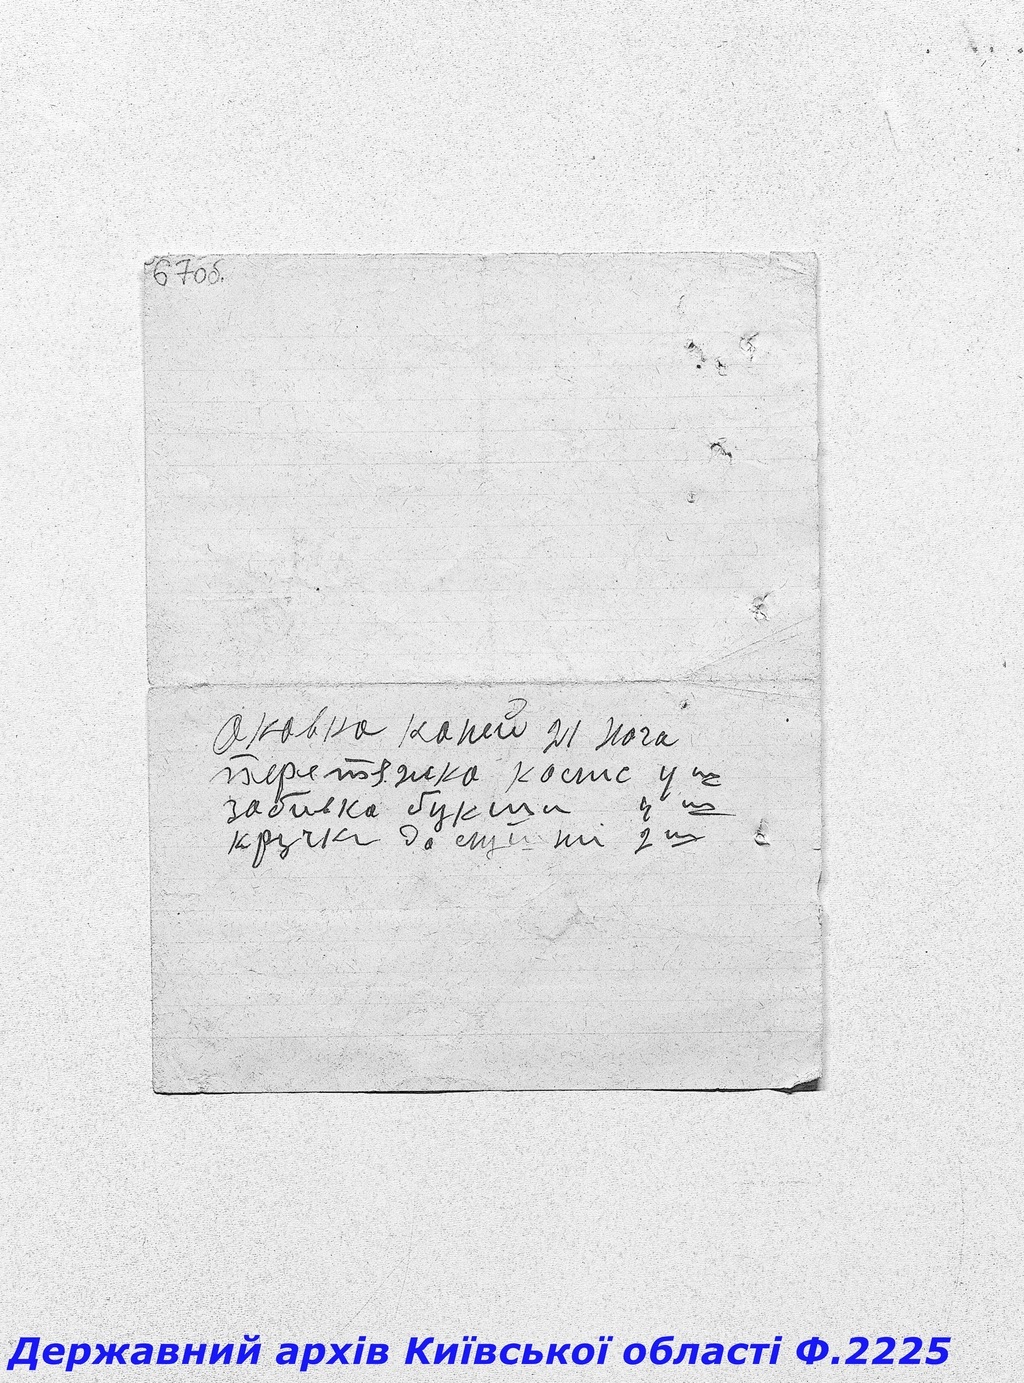 67об.
Оковка коней 21 нога
перетяжка колис 4 ш
забивка букши 4 ш
кручки до 2 ш
Державний архів Київської області Ф.2225